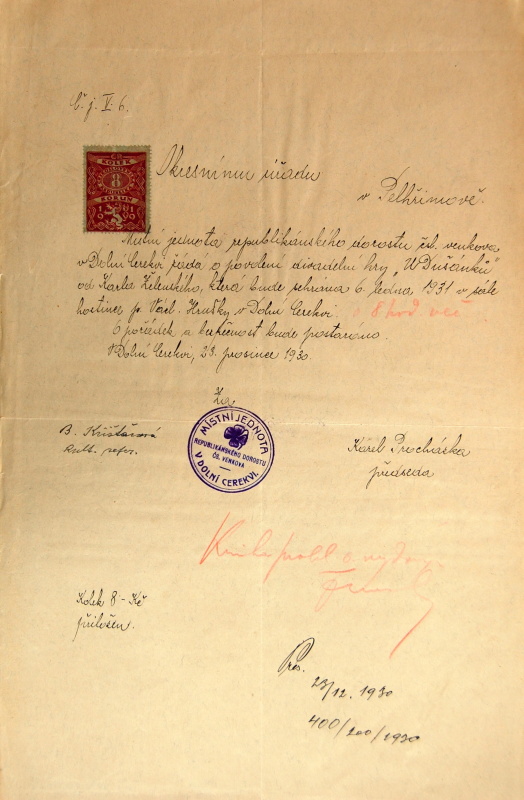 Č. j. V. 6.
KOLEK
8
KORUN
Okresnímu úřadu
v Pelhřimově.
Místní jednota republikánského dorostu čsl. venkova
v Dolní Cerekvi žádá o povolení divadelní hry, "U Dušánků"
od Karla Želenského, která bude sehrána 6. ledna, 1931 v sále
hostince p. Václ. Hrušky v Dolní Cerekvi. o 8 hod. več
O pořádek a bezpečnost bude postaráno.
V Dolní Cerekvi, 23. prosince 1930.
Za
MÍSTNÍ JEDNOTA
REPUBLIKÁNSKÉHO DOROSTU
ČS. VENKOVA
V DOLNÍ CEREKVI.
B.
Kult. refer.
Karel Procházka
předseda
Kolek 8 - Kč
přiložen.
Pres.
23/12. 1930
400/200/1930